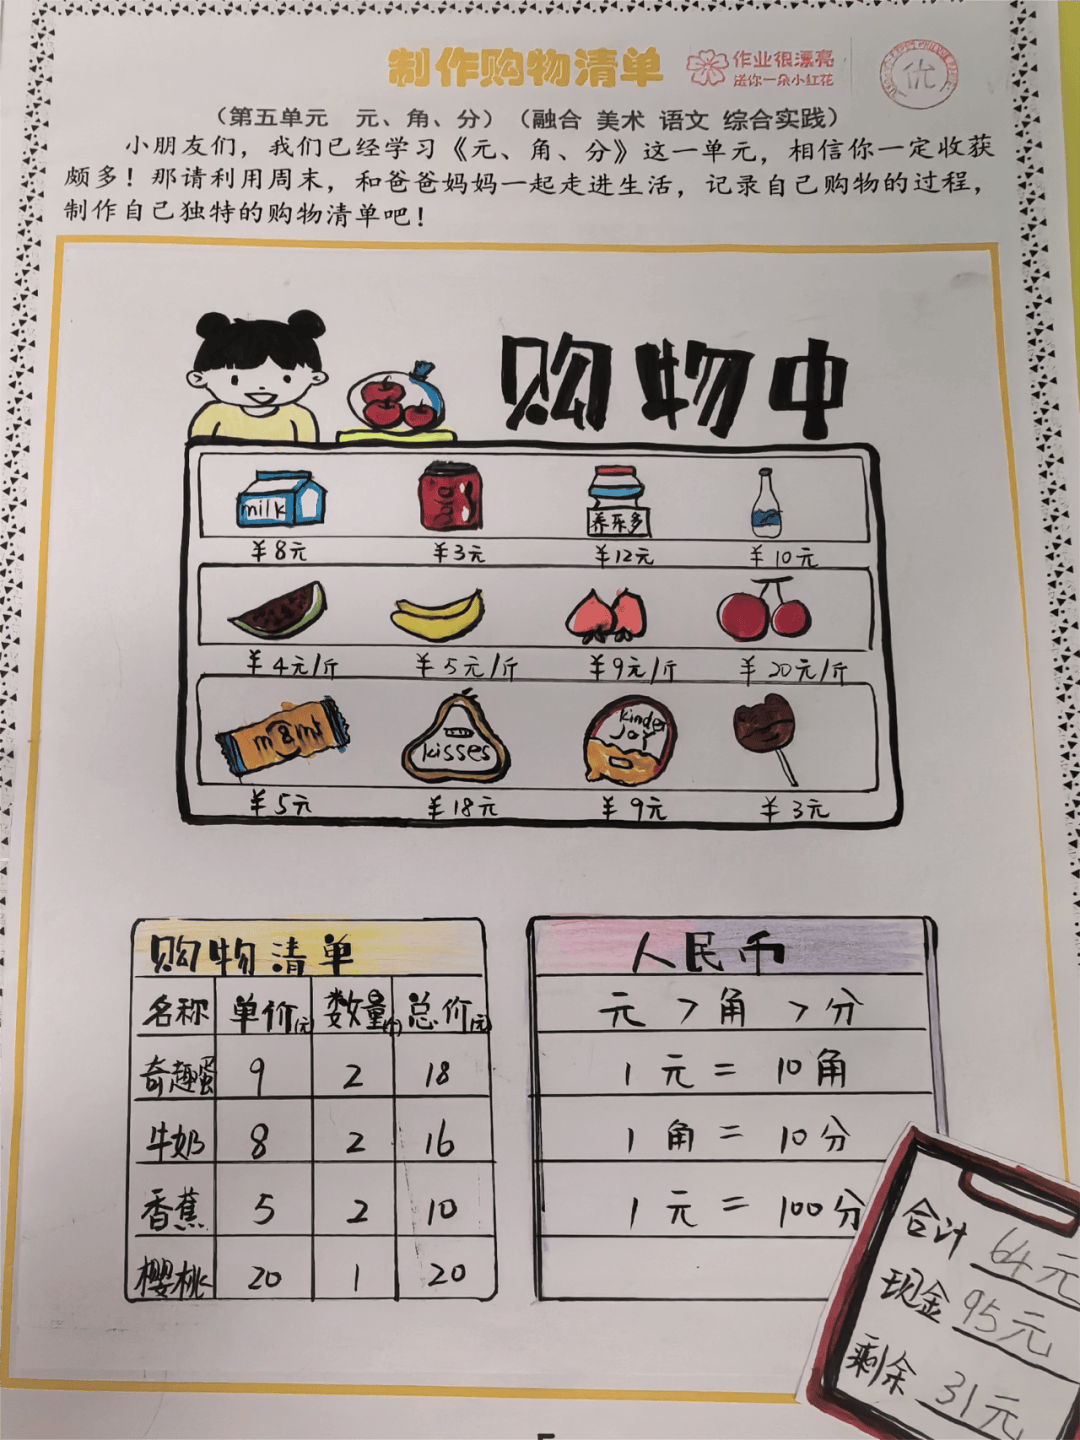 制作购物清单
作业很漂亮
送你一朵小红花
优
（第五单元 元、角、分）（融合 美术 语文 综合实践）
小朋友们，我们已经学习《元、角、分》这一单元，相信你一定收获
颇多！那请利用周末，和爸爸妈妈一起走进生活，记录自己购物的过程，
制作自己独特的购物清单吧！
购物中
milk
养乐多
¥8元 ¥3元 ¥12元 ¥10元
¥4元/斤 ¥5元/斤 ¥9元/斤 ¥20元/斤
m&m's kisses kinder
JOY
¥5元 ¥18元 ¥9元 ¥3元
购物清单
名称 单价(元) 数量(个) 总价(元)
奇趣蛋 9 2 18
牛奶 8 2 16
香蕉 5 2 10
樱桃 20 1 20
人民币
元>角>分
1元=10角
1角=10分
1元=100分
合计 64元
现金 95元
剩余 31元